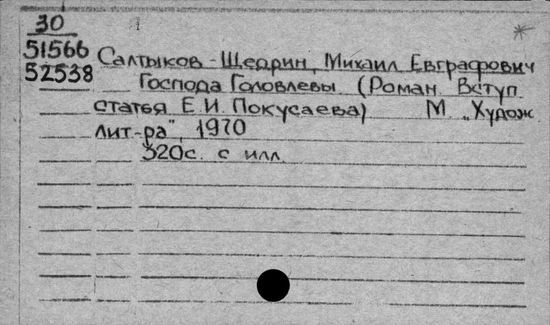 30
51566 Салтыков-Щедрин, Михаил Евграфович
52538 Господа Головлевы (Роман. Вступ.
статья Е.И. Покусаева) М. „Худож.
лит-ра", 1970
320с. с илл.